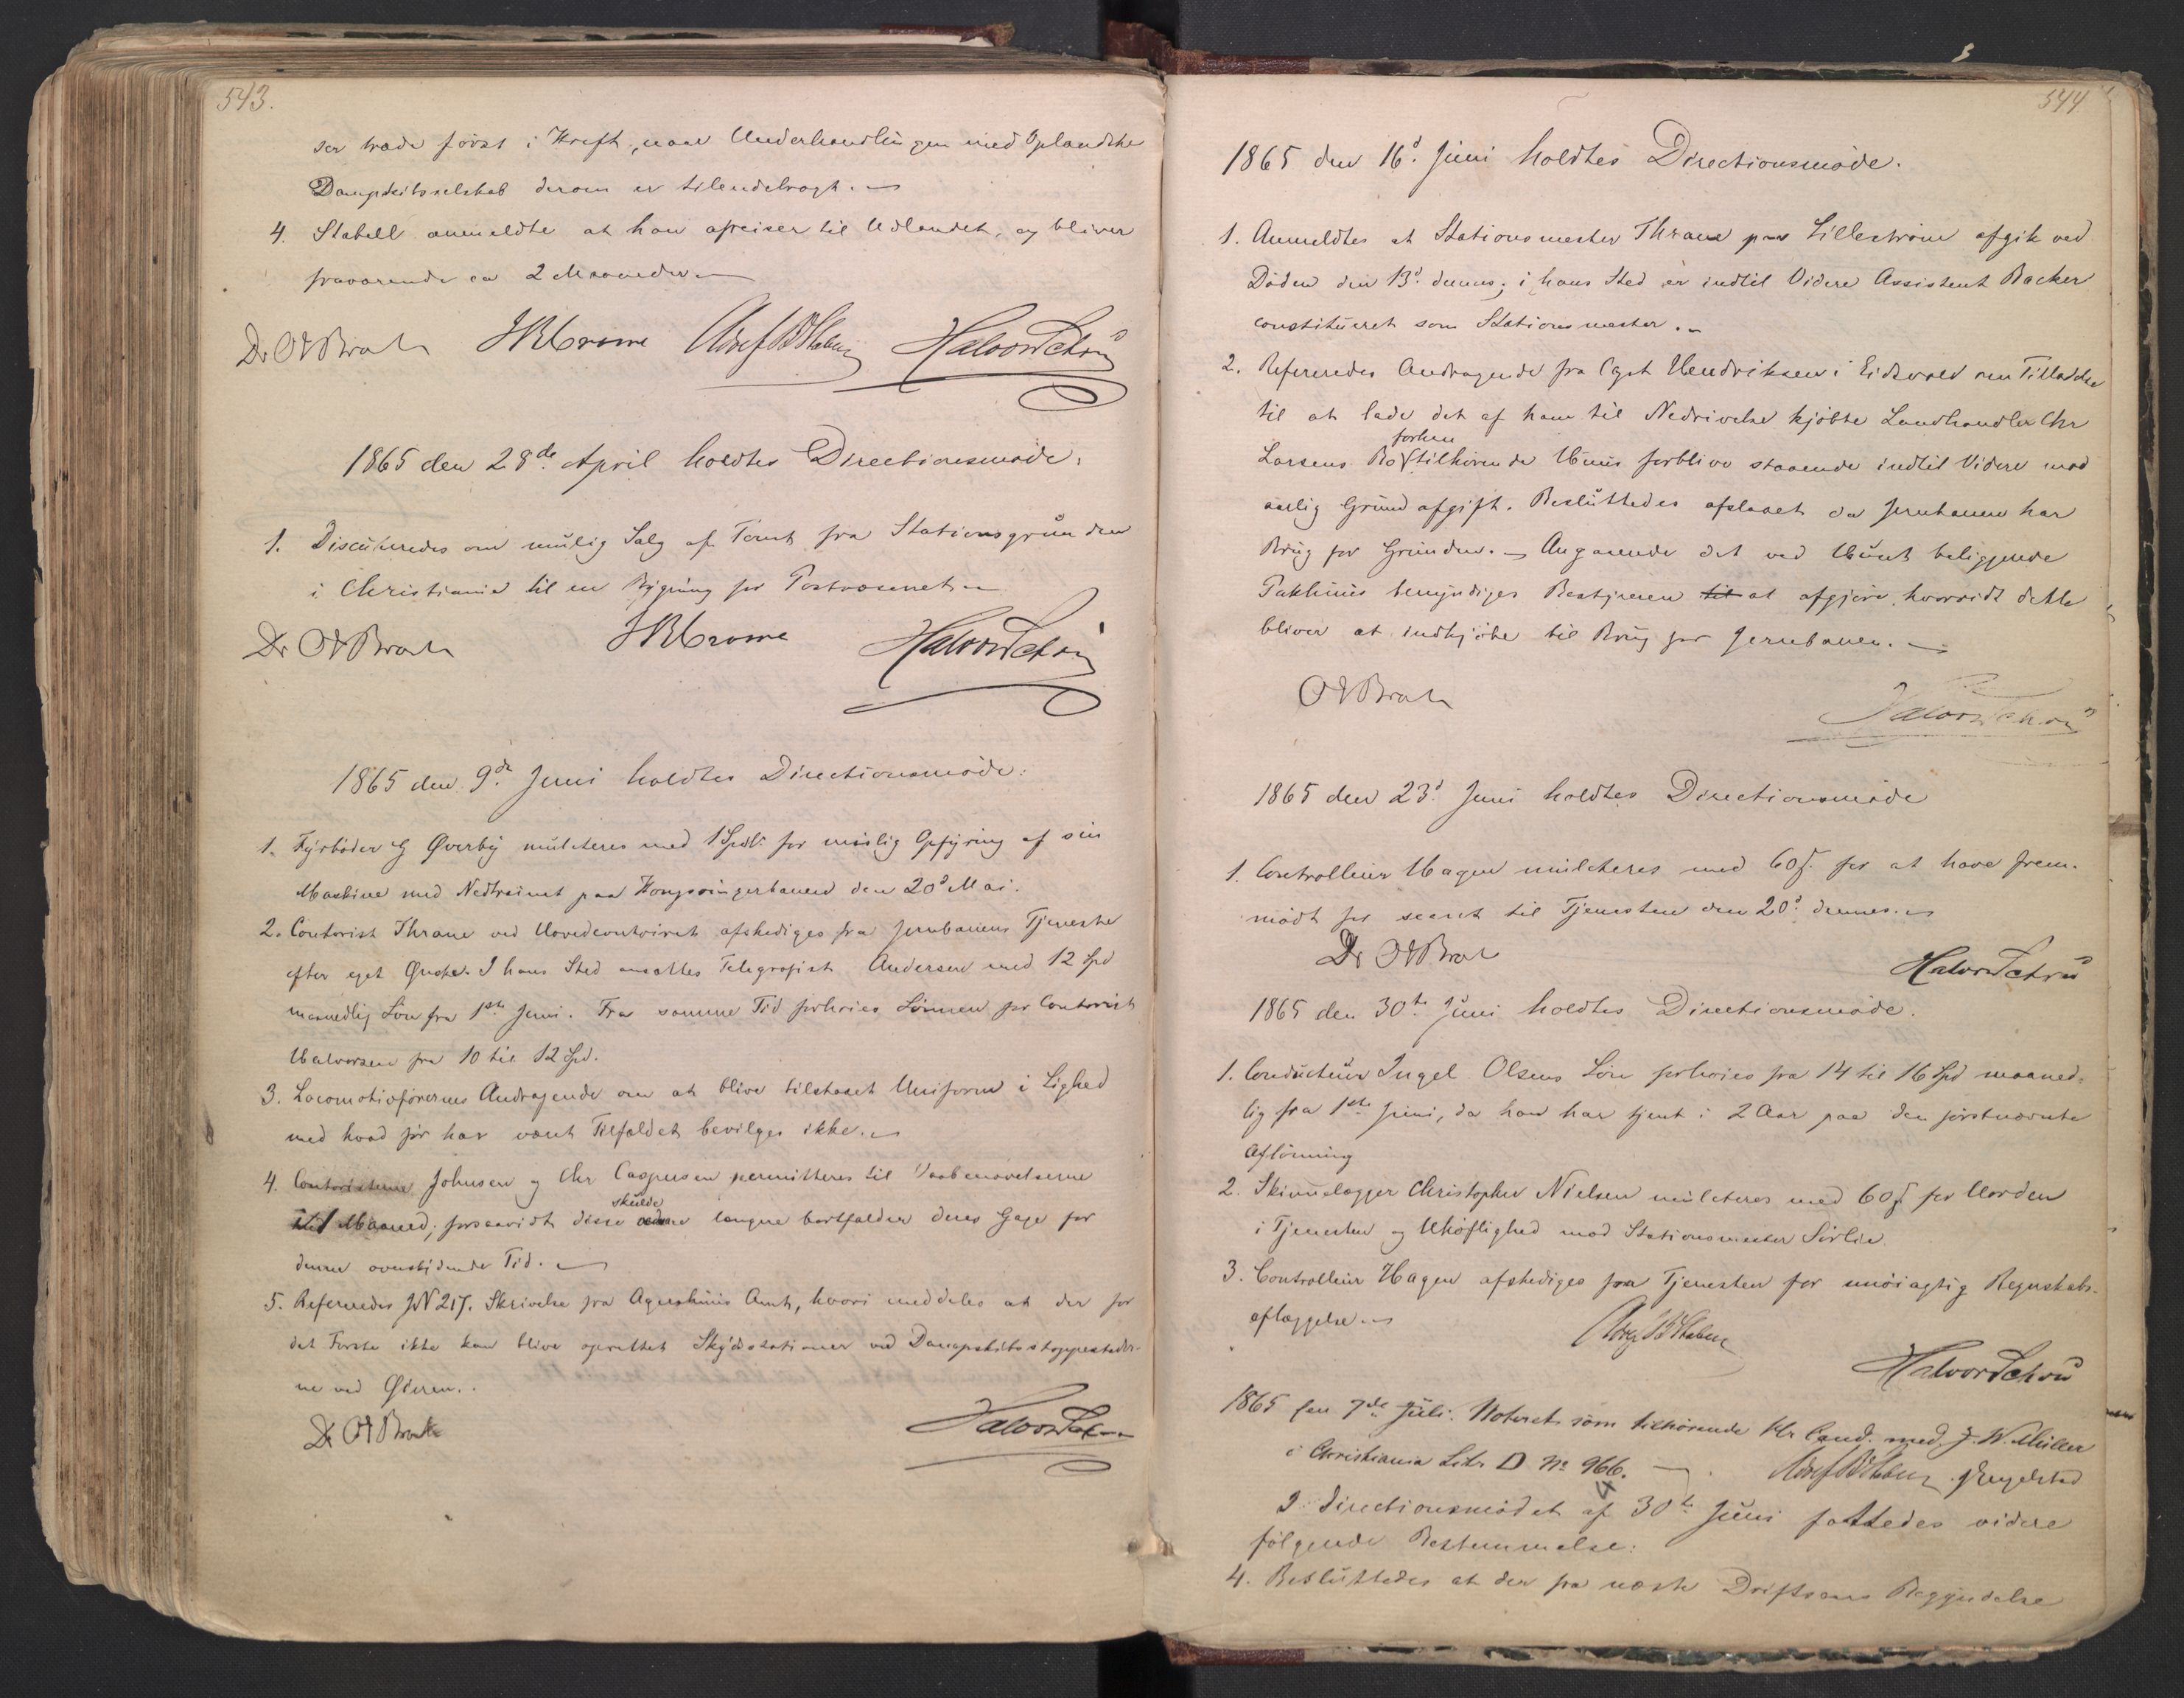 543.
ser træde først i Kraft, naar Underhandlingen med Oplandske
Dampskibsselskab derom er tilendebragt.
4. Stabell anmeldte at han afreiser til Udlandet, og bliver
fraværende ca 2 Maaneder
Dr O J Broch JB Crowe Halvor Schou
1865 den 28de April holdtes Directionsmøde.
1. Discuteredes om mulig Salg af Tomt fra Stationsgrunden
i Christiania til en Bygning for Postvæsenet.
Dr O J Broch JB Crowe Halvor Schou
1865 den 9de Juni holdtes Directionsmøde:
1. Fyrbøder G Øverby mulcteres med 1 Spdlr for uvislig Opfyring af sin
Maskine med Nedtrainet paa Kongsvingerbanen den 20d Mai.
2. Contorist Thrane ved Hovedcontoiret afskediges fra Jernbanens Tjeneste
efter eget Ønske. I hans Sted ansattes Telegrafist Andersen med 12 Spd
maanedlig Løn fra 1ste Juni. Fra samme Tid forhøies Lønnen for Contorist
Halvorsen fra 10 til 12 Spd.
3. Locomotivførernes Andragende om at blive tilstaaet Uniform i Lighed
med hvad før har været Tilfældet bevilges ikke.
4. Contoristerne Johnsen og Chr Caspersen permitteres til Vaabenøvelserne
1 Maaned; forsaavidt disse skulde længere bortfalder deres Gage for
denne overskidende Tid.
5. Refereredes JN 217. Skrivelse fra Agershuus Amt, hvori meddeles at der for
det Første ikke kan blive oprettet Skydsstationer ved Dampskibsstoppestederne
ne ved Øieren.
Dr O J Broch Halvor Schou
544
1865 den 16d Juni holdtes Directionsmøde.
1. Anmeldtes at Stationsmester Thrane paa Lillestrøm afgik ved
Døden den 13d dennes; i hans Sted er indtil Videre Assistent Backer
constitueret som Stationsmester.
2. Refereredes Andragende fra Capt Hendriksen i Eidsvold om Tilladelse
til at lade det af ham til Nedrivelse kjøbte Landhandler Chr
Larsens Bo forhen tilhørende Huus forblive staaende indtil Videre mod
aarlig Grundafgift. Besluttedes afslaaet da Jernbanen har
Brug for Grunden. Angaaende det ved Huset beliggende
Pakhuus bemyndiges Bestyreren til at afgjøre hvorvidt dette
bliver at indkjøbe til Brug for Jernbanen.
O J Broch Halvor Schou
1865 den 23d Juni holdtes Directionsmøde
1. Controlleur Hagen mulcteres med 60 ß for at have frem-
mødt for seent til Tjenesten den 20d dennes.
Dr O J Broch
Halvor Schou
1865 den 30te Juni holdtes Directionsmøde.
1. Conducteur Ingel Olsens Løn forhøies fra 14 til 16 Spd maaned-
lig fra 1ste Juni, da han har tjent i 2 Aar paa den førstnævnte
Aflønning
2. Skinnelægger Christopher Nielsen mulcteres med 60 ß for Uorden
i Tjenesten og Uhøflighed mod Stationsmester Sørlie.
3. Controlleur Hagen afskediges fra Tjenesten for unøiagtig Regnskabs-
aflæggelse.
Halvor Schou
1865 den 7de Juli. Noteret som tilhørende Hr Cand. med. J. W. Müller
i Christiania Litr D No 966. Engelstad
I Directionsmødet af 30te Juni fattedes videre
følgende Bestemmelse:
4. Besluttedes at der fra næste Driftsaars Begyndelse